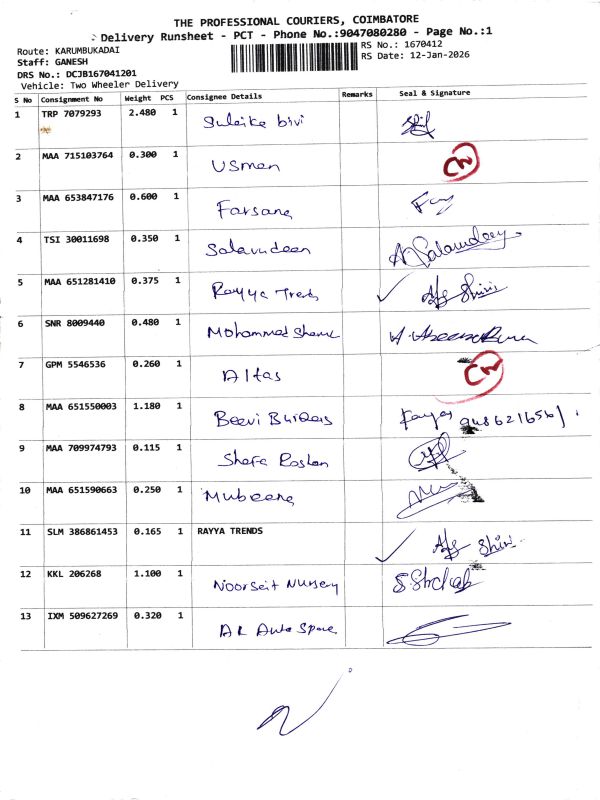 THE PROFESSIONAL COURIERS, COIMBATORE
Delivery Runsheet - PCT - Phone No.:9047080280 - Page No.:1
Route: KARUMBUKADAI
RS No.: 1670412
Staff: GANESH
RS Date: 12-Jan-2026
DRS No.: DCJB167041201
Vehicle: Two Wheeler Delivery
S No Consignment No Weight PCS Consignee Details Remarks Seal & Signature
1 TRP 7079293 2.480 1 Suleika bivi
2 MAA 715103764 0.300 1 Usman CN
3 MAA 653847176 0.600 1 Farsana
4 TSI 30011698 0.350 1 Salavudeen A. Salavudeen
5 MAA 651281410 0.375 1 Rayya Trends
6 SNR 8009440 0.480 1 Mohammed
7 GPM 5546536 0.260 1 Altas CN
8 MAA 651550003 1.180 1 Beevi Builders
9 MAA 709974793 0.115 1 Shefa Roshan
10 MAA 651590663 0.250 1 Mubeena
11 SLM 386861453 0.165 1 RAYYA TRENDS
12 KKL 206268 1.100 1 Noorseit Nursery
13 IXM 509627269 0.320 1 Auto Spare